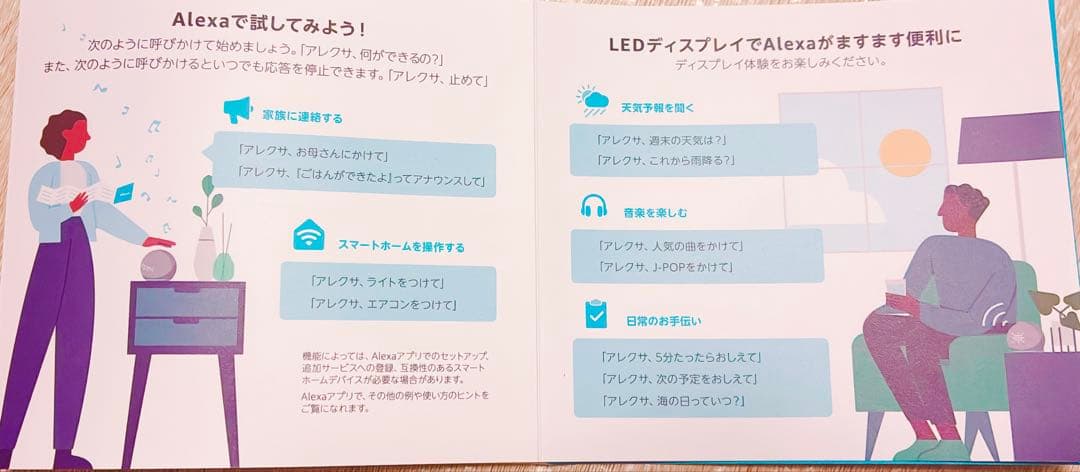 Alexaで試してみよう!
次のように呼びかけて始めましょう。「アレクサ、何ができるの?」
また、次のように呼びかけるといつでも応答を停止できます。「アレクサ、止めて」
家族に連絡する
「アレクサ、お母さんにかけて」
「アレクサ、『ごはんができたよ』ってアナウンスして」
スマートホームを操作する
「アレクサ、ライトをつけて」
「アレクサ、エアコンをつけて」
機能によっては、Alexaアプリでのセットアップ、
追加サービスへの登録、互換性のあるスマート
ホームデバイスが必要な場合があります。
Alexaアプリで、その他の例や使い方のヒントを
ご覧になれます。
LEDディスプレイでAlexaがますます便利に
ディスプレイ体験をお楽しみください。
天気予報を聞く
「アレクサ、週末の天気は?」
「アレクサ、これから雨降る?」
音楽を楽しむ
「アレクサ、人気の曲をかけて」
「アレクサ、J-POPをかけて」
日常のお手伝い
「アレクサ、5分たったらおしえて」
「アレクサ、次の予定をおしえて」
「アレクサ、海の日っていつ?」